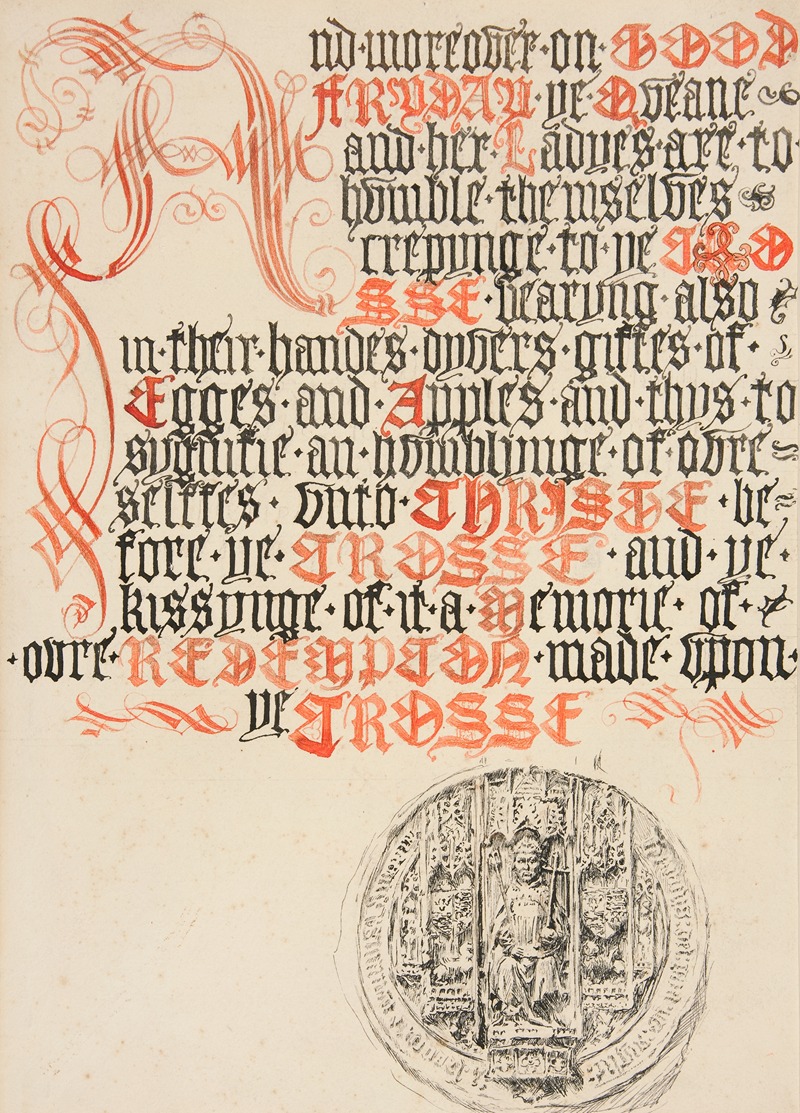 And·moreover·on·GOOD
FRYDAY·ye·Qveane
and·her·Ladyes·are·to·
hvmble·themselves
crepynge·to·ye CRO
SSE·bearyng·also
in·their·handes·dyvers·giftes·of·
Egges·and·Apples·and·thys·to
sygnifie·an·hvmblynge·of·ovre
selffes· vnto·CHRISTE·be
fore·ye·CROSSE·and·ye·
kissynge·of·it·a·Memorie·of·
·ovre·REDEMPCON·made·vpon·
ye CROSSE